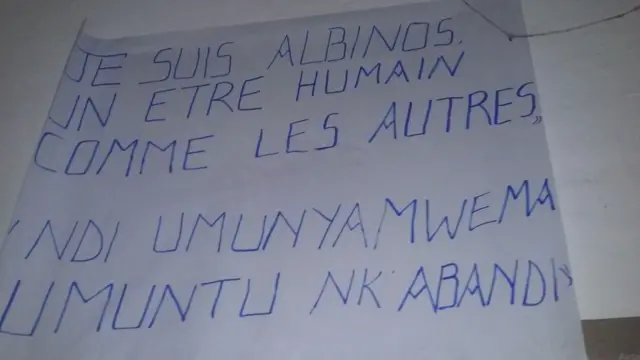 JE SUIS ALBINOS.
UN ETRE HUMAIN
COMME LES AUTRES,,
'NDI UMUNYAMWEMA
UMUNTU NK'ABANDI"